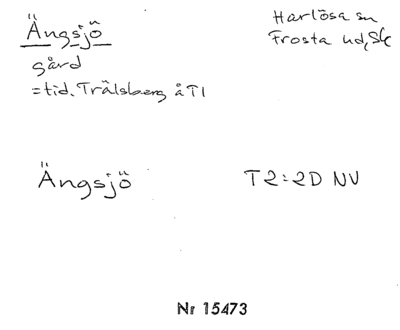 Ängsjö
Harlösa sn
Frosta hd, Sk
gård
= tid. Trälsberg å T1
Ängsjö
T2:2D NV
Nr 15473